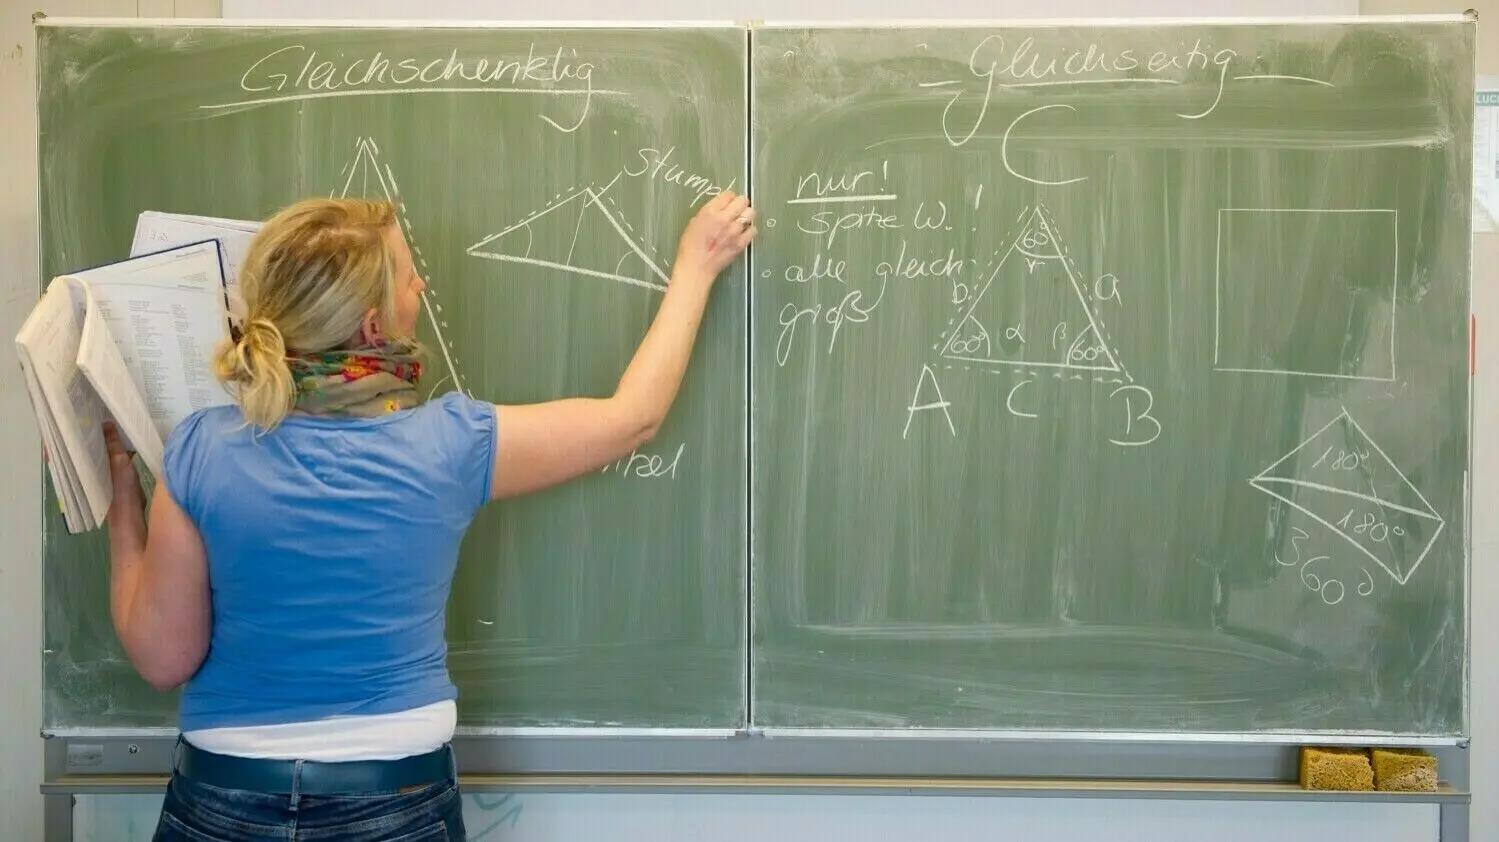 Gleichschenklig
stumpf
Gleichseitig
C
nur!
spitze W. !
alle gleich
groß
60°
γ
b
a
60°
α
β
60°
A
c
B
180°
180°
360°